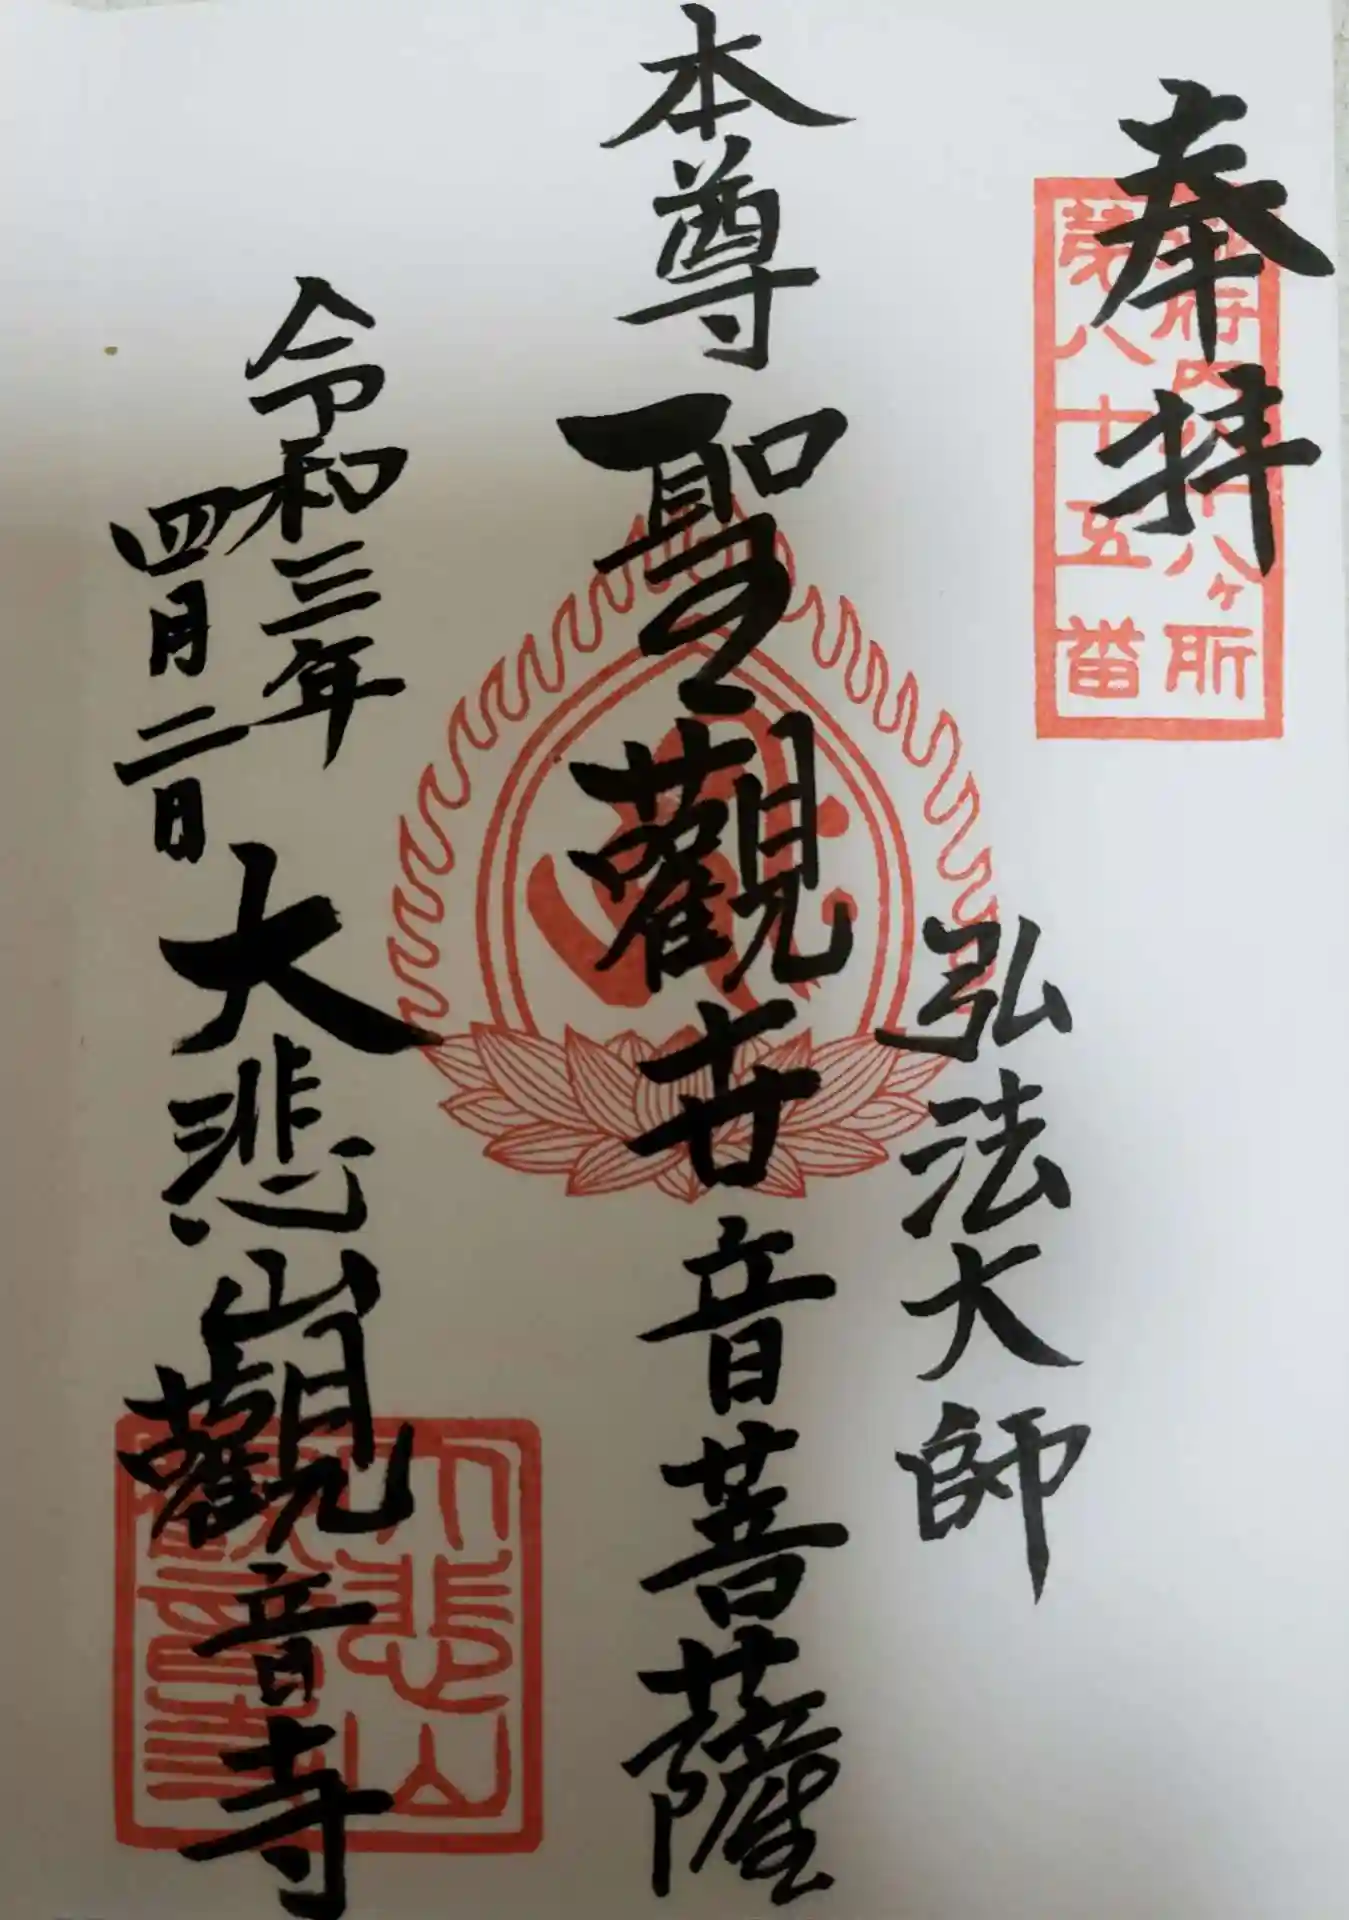 奉拝
八ヶ所
第八十五番
弘法大師
本尊聖觀世音菩薩
令和三年
四月二日
大悲山觀音寺
大悲山
觀音寺